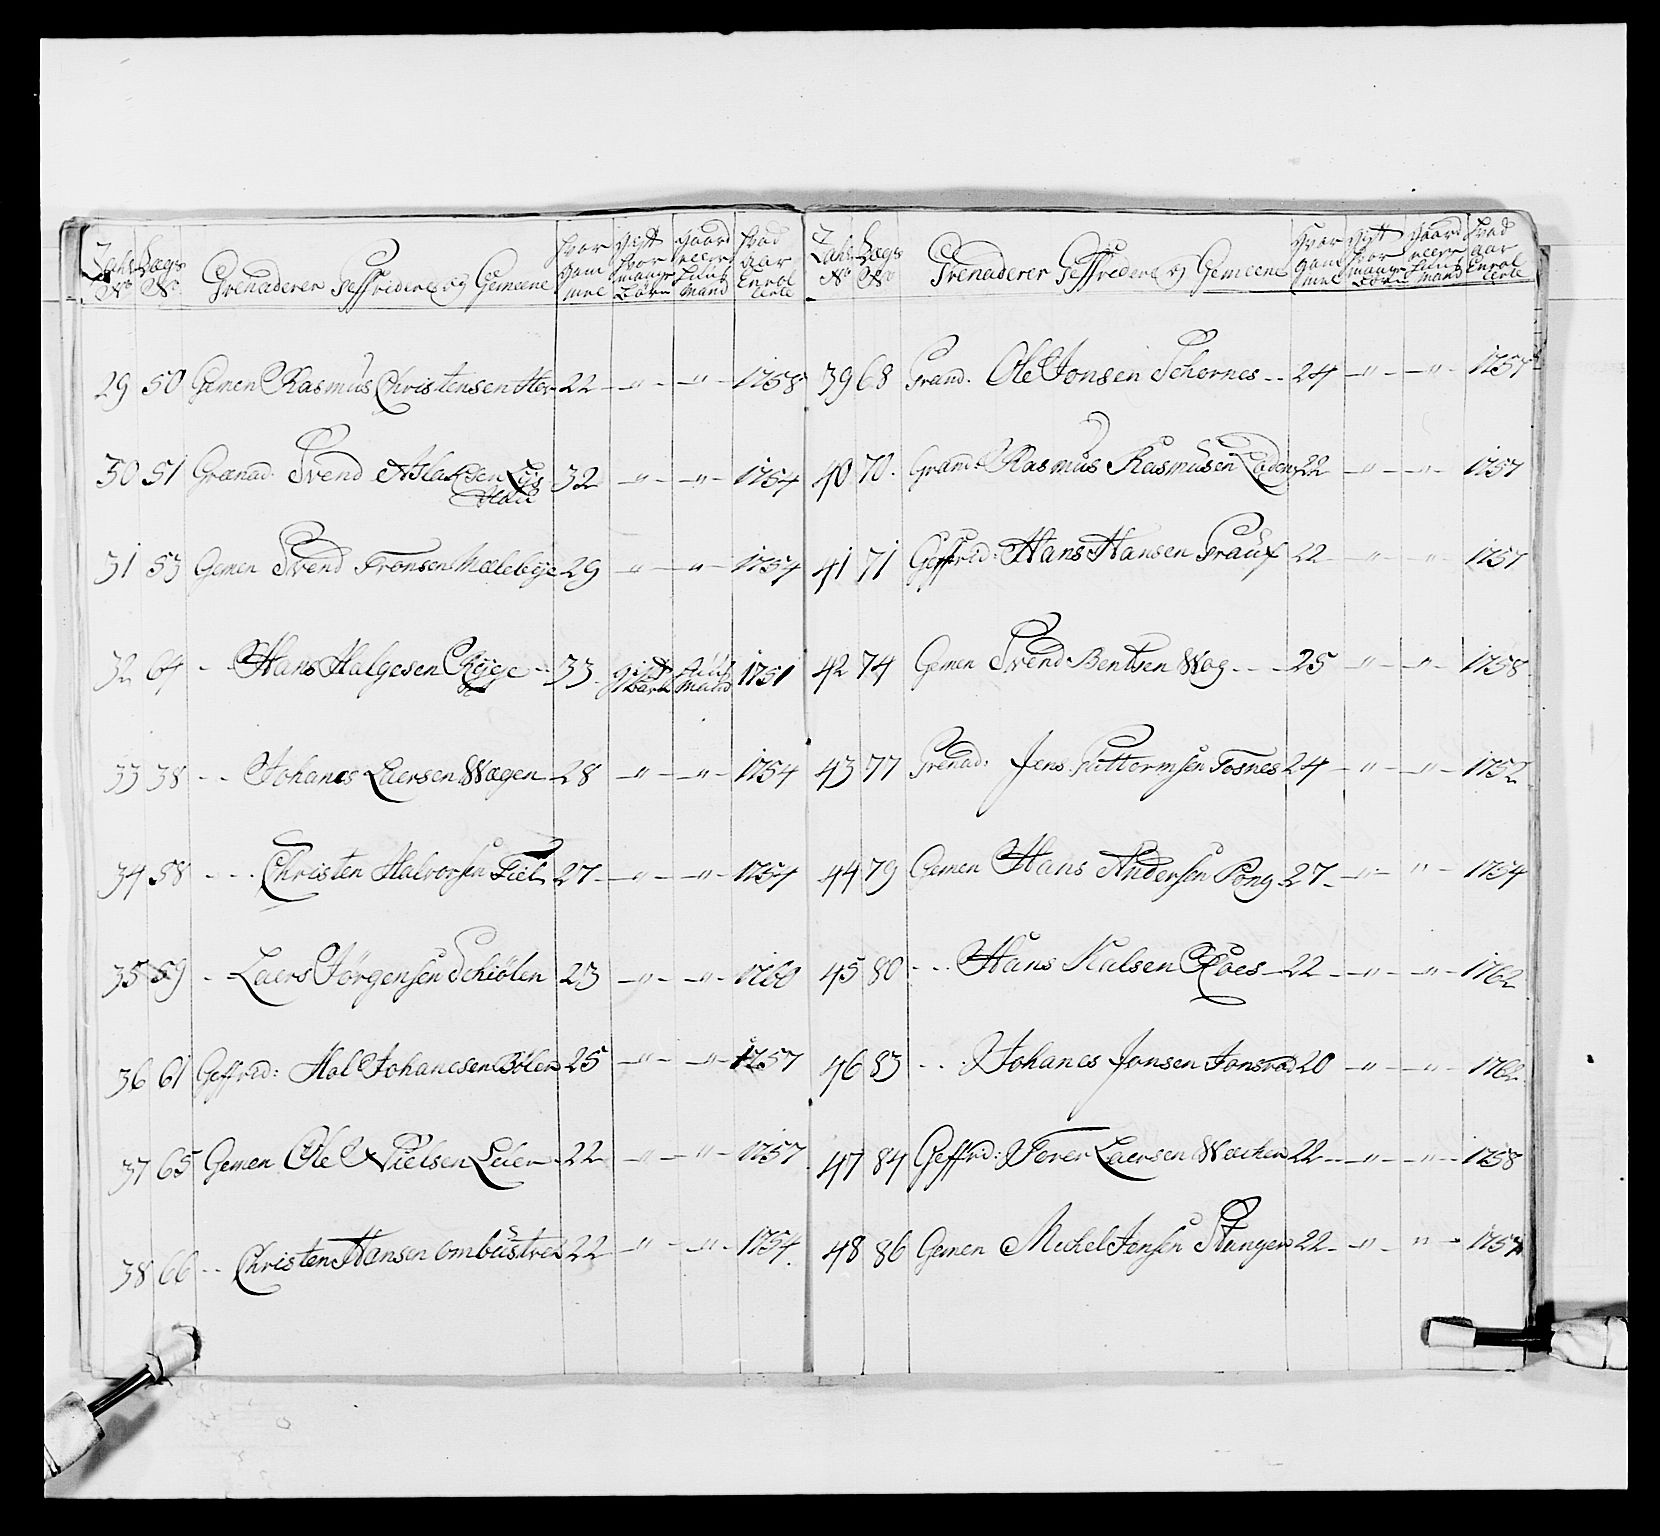 Tahl No Lægs No Grenaderer Geffridere og Gemeene Hvor Gamle Gift Hvor mange Børn Gaard eller Huus Mand Hvad Aar Enrollerte
29 50 Gemen Rasmus Christensen Hov 22 -"- -"- 1758
30 51 Grænad. Svend Aslaksen Lys 32 -"- -"- 1754
31 53 Gemen Svend Tronsen Mælebye 29 -"- -"- 1754
32 64 - - Hans Halgesen Ryge - 33 gift 1 Barn Huus Mand 1751
33 38 - - Johanes Laersen Wægen 28 -"- -"- 1754
34 58 - - Christen Halvorsen Fiel 27 -"- -"- 1754
35 59 - Laers Jørgensen Schiølen 23 -"- -"- 1760
36 61 Geffrid: Hal Johanesen Bølen 25 -"- -"- 1757
37 65 Gemen Ole Nielsen Leier 22 -"- -"- 1757
38 66 - - Christen Hansen ombustved 22 -"- -"- 1754
Tahl No Lægs No Grenaderer Geffridere og Gemeene Hvor Gamle Gift Hvor mange Børn Gaard eller Huus Mand Hvad Aar Enrollerte
39 68 Grænd. Ole Jonsen Schornes - - 24 -"- -"- 1757
40 70. Grænd: Rasmus Rasmusen Loden 22 -"- -"- 1757
41 71 Geffrid: Hans Hansen Graux 22 -"- -"- 1757
42 74 Gemen Svend Bentsen Wog - - - 25 -"- -"- 1758
43 77 Grenad: Jens Guttormsen Tosnes 24 -"- -"- 1752
44 79 Gemen Hans Andersen Pong 27 -"- -"- 1754
45 80 - - Hans Kalsen Roes 22 -"- -"- 1762
46 83 - - Johanes Jonsen Jonsrød 20 -"- -"- 1762
47 84 Geffrid: Terer Laersen Wæcken 22 -"- -"- 1758
48 86 Gemen Mickel Jensen Stangen 22 -"- -"- 1757